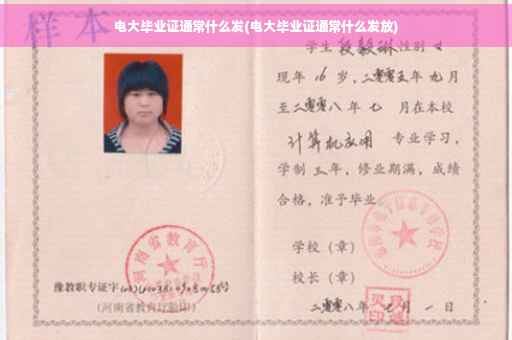 电大毕业证通常什么发(电大毕业证通常什么发放)
样本
学生段毅琳性别女
现年16岁,二零零五年九月
至二零零八年七月在本校
计算机应用 专业学习,
学制三年,修业期满,成绩
合格,准予毕业
学校(章)
校长(章)
二零零八年七月一日
河南省教育厅
豫教职专证字
(河南省教育厅验印)